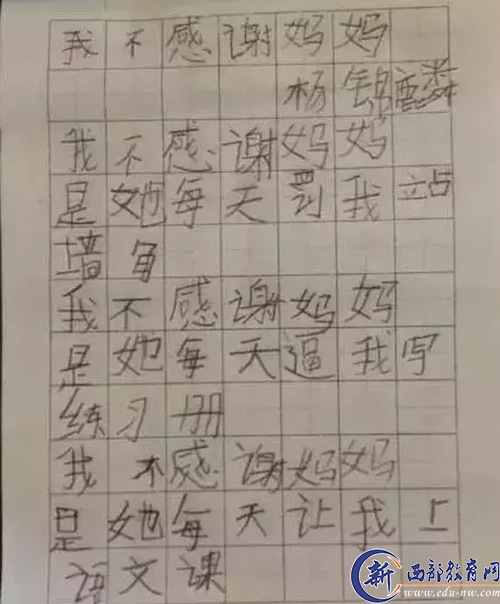 我不感谢妈妈
杨锦
我不感谢妈妈
是她每天罚我站
墙角
我不感谢妈妈
是她每天逼我写
练习册
我不感谢妈妈
是她每天让我上
语文课
新 西部教育网
www.edu-nw.com